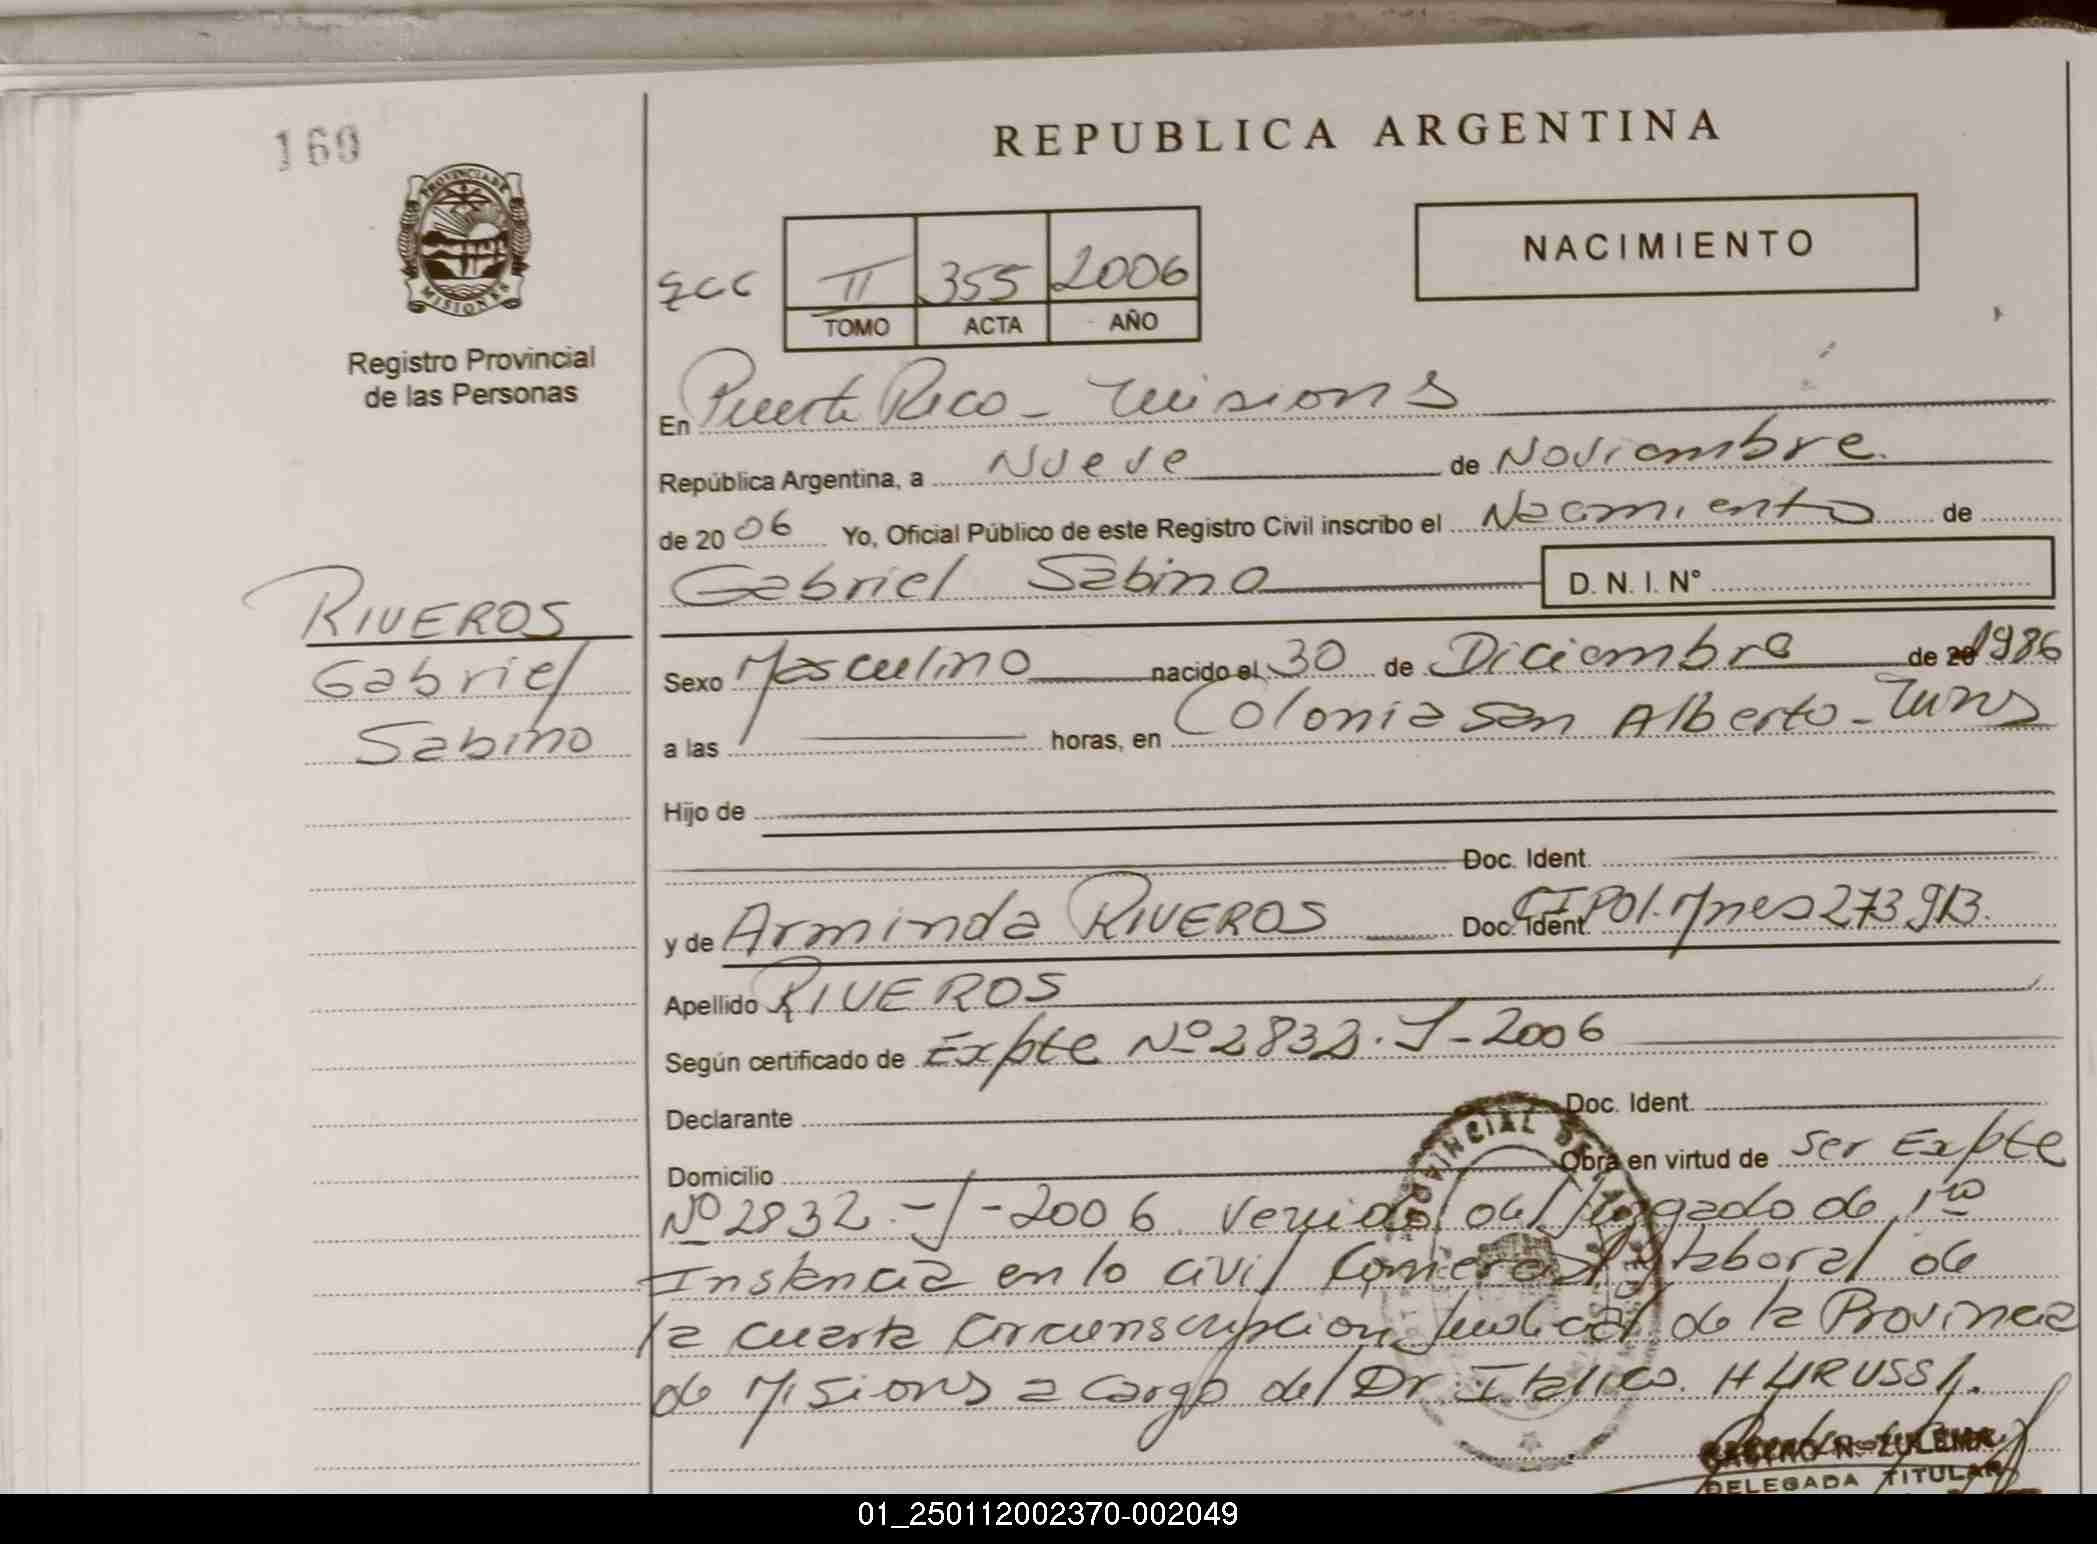 160
REPUBLICA ARGENTINA
PROVINCIA DE
MISIONES
NACIMIENTO
II 355 2006
TOMO ACTA AÑO
Registro Provincial
de las Personas
En Puerto Rico - Misiones
República Argentina, a Nueve de Noviembre
de 2006 Yo, Oficial Público de este Registro Civil inscribo el Nacimiento de
Gabriel Sabino D. N. I. Nº
RIVEROS
Gabriel
Sabino
Sexo Masculino nacido el 30 de Diciembre de 20 1986
a las horas, en Colonia San Alberto - Mnes
Hijo de
Doc. Ident.
y de Arminda RIVEROS Doc. Ident. CI Pol. Mnes 273.913.
Apellido RIVEROS
Según certificado de Expte Nº 2832. J - 2006
Declarante Doc. Ident.
Domicilio Obra en virtud de Ser Expte
Nº 2832 - J - 2006 Venido del Juzgado de 1ra
Instancia en lo Civil Comercial y laboral de
la cuarta Circunscripcion Judicial de la Provincia
de Misiones a cargo del Dr Italico. HURUSSI.
PROVINCIAL DE
N. ZULEMA
DELEGADA TITULAR
01_250112002370-002049